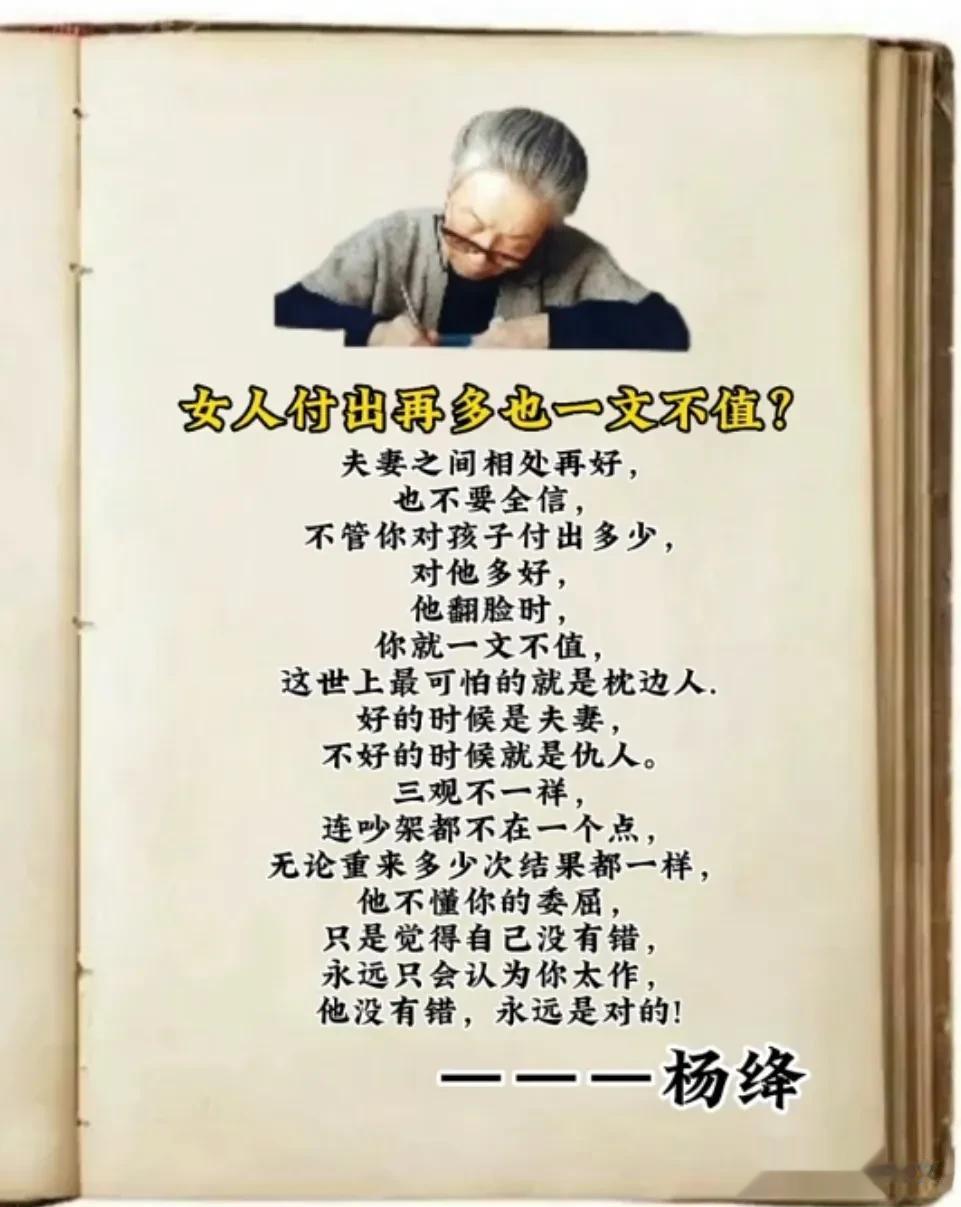 女人付出再多也一文不值？
夫妻之间相处再好，
也不要全信，
不管你对孩子付出多少，
对他多好，
他翻脸时，
你就一文不值，
这世上最可怕的就是枕边人.
好的时候是夫妻，
不好的时候就是仇人。
三观不一样，
连吵架都不在一个点，
无论重来多少次结果都一样，
他不懂你的委屈，
只是觉得自己没有错，
永远只会认为你太作，
他没有错，永远是对的!
———杨绛